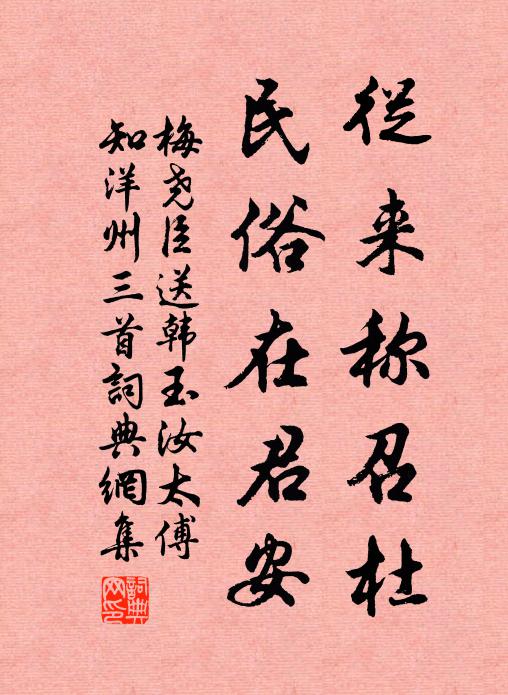 從来称召杜
民俗在君安
梅尧臣送韩玉汝太傅
知洋州三首詞典網集
詞典
网印